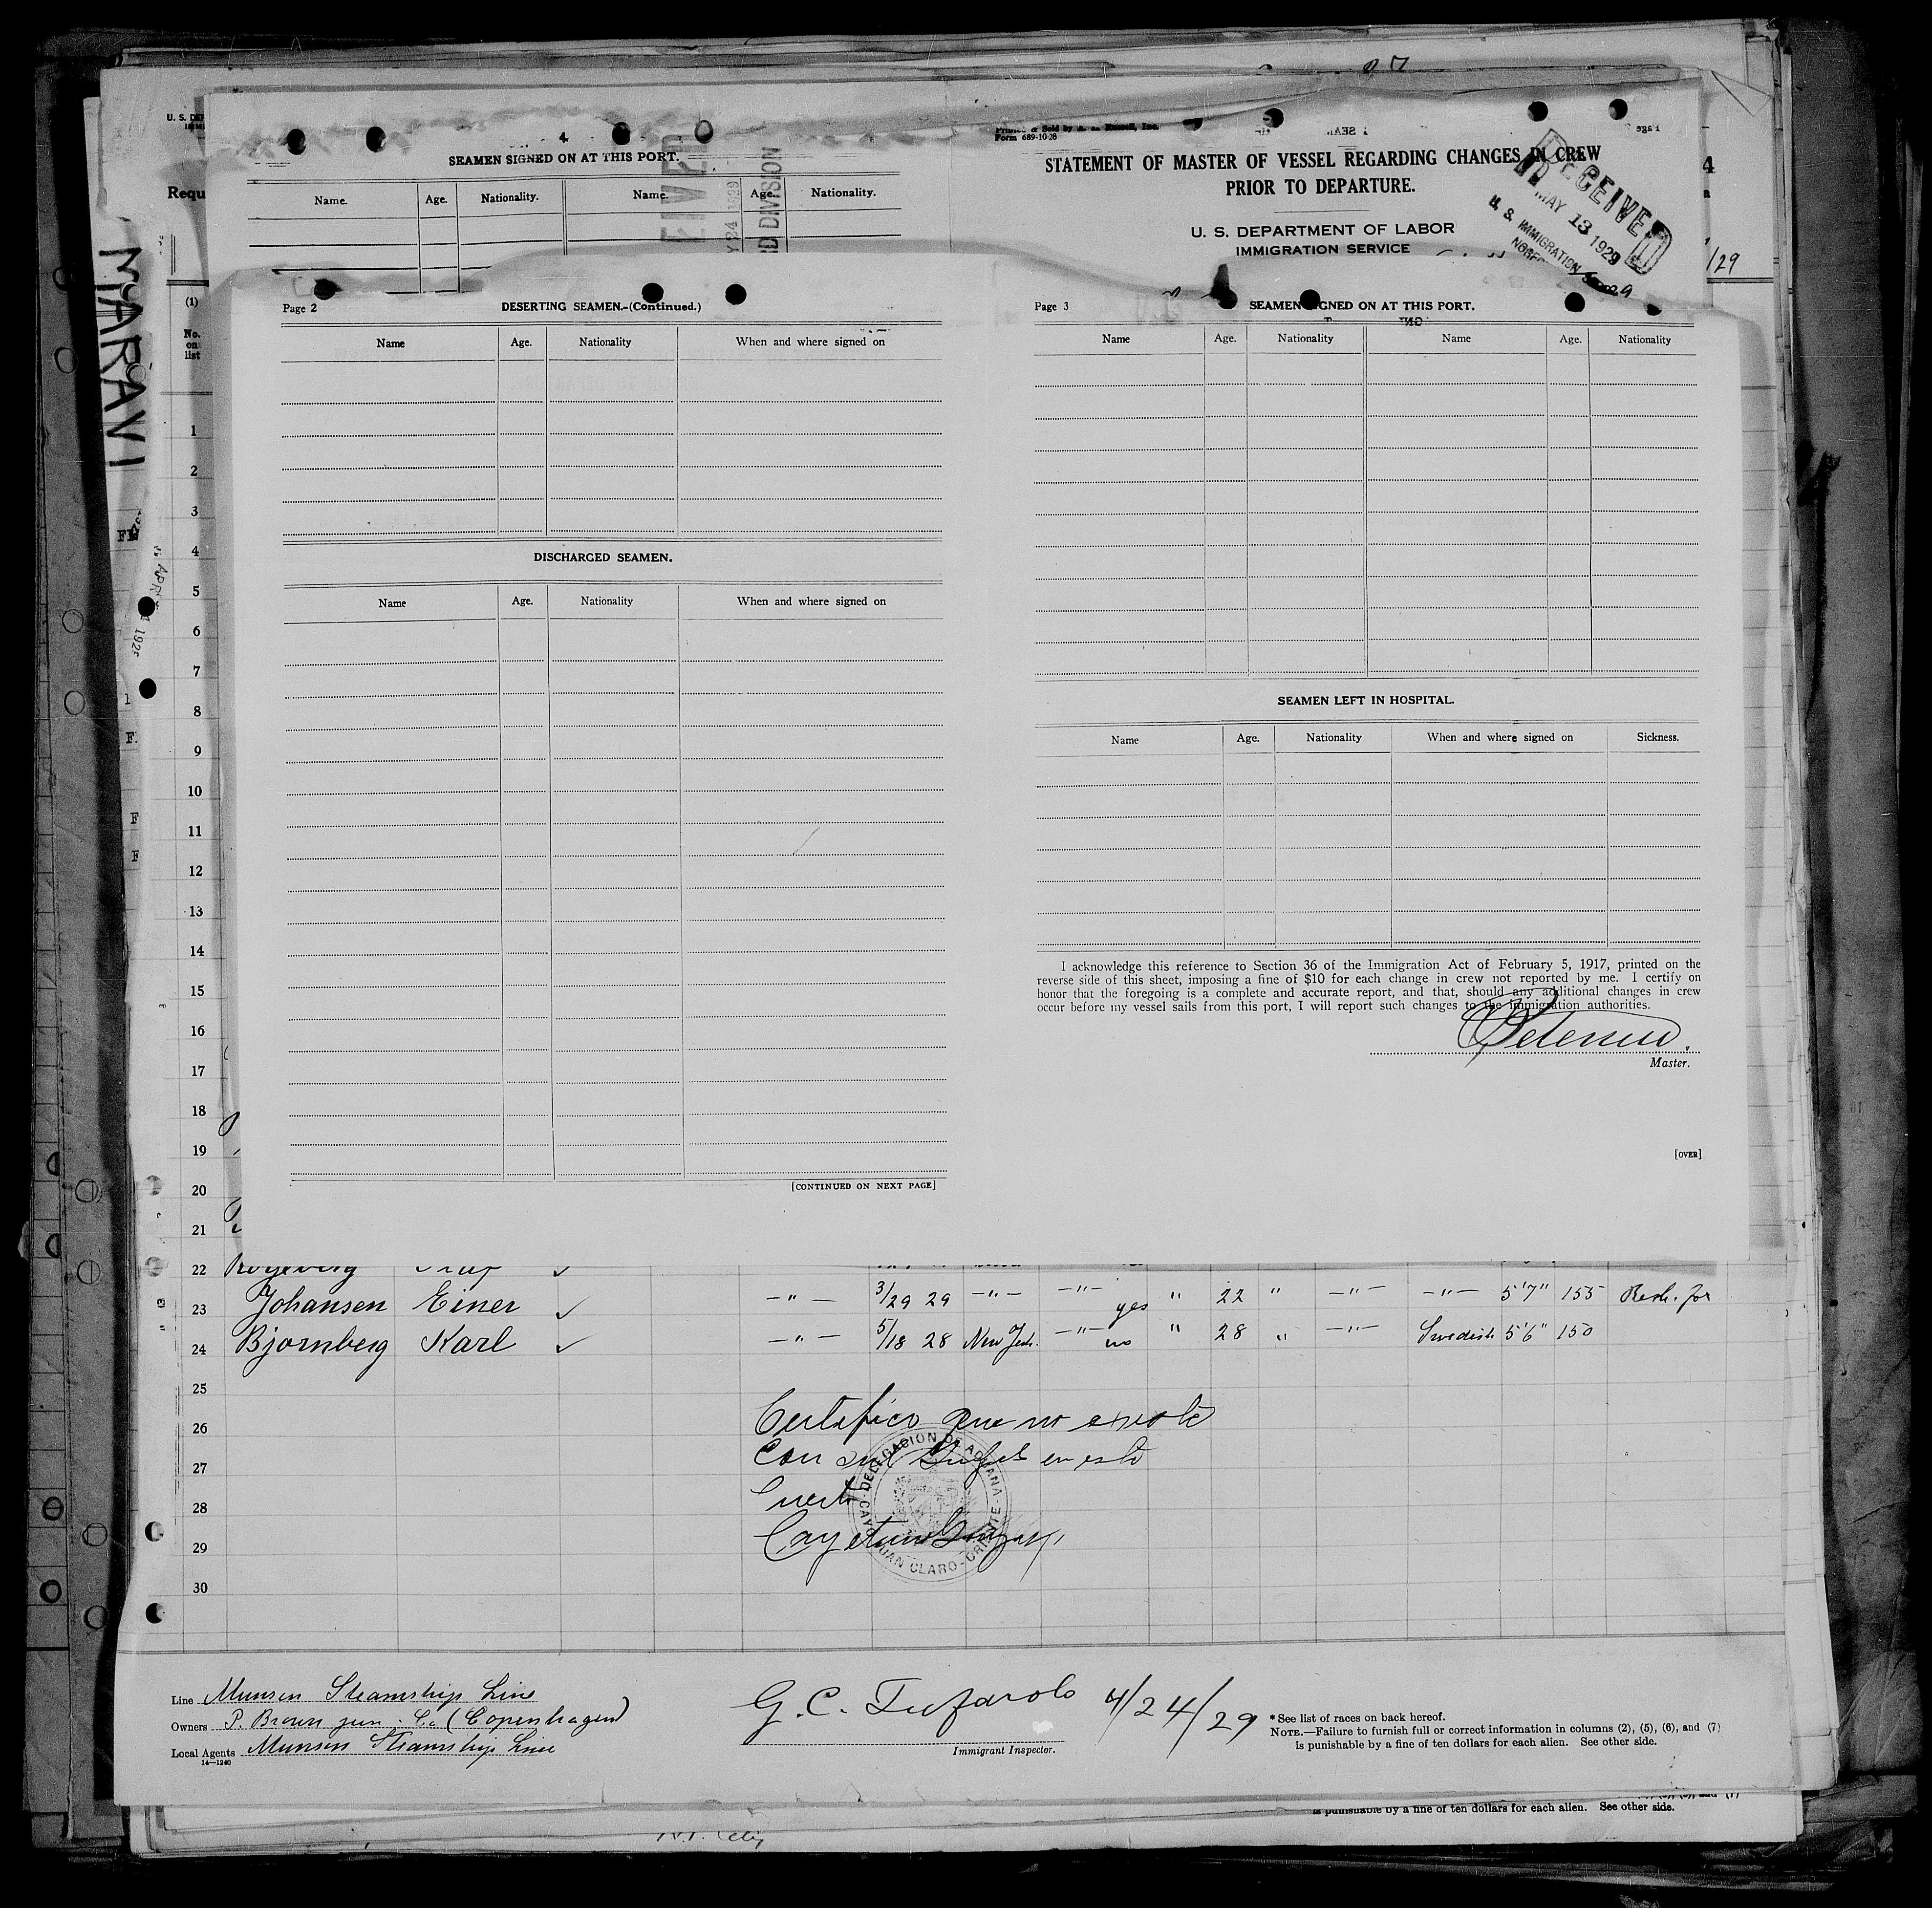 U. S. DEP
Requ
MARAVI
4
SEAMEN SIGNED ON AT THIS PORT.
Name. Age. Nationality. Name. Age. Nationality.
Y 24 1929
D DIVISION
Printed & Sold by
Form 689-10-28
STATEMENT OF MASTER OF VESSEL REGARDING CHANGES IN CREW
PRIOR TO DEPARTURE.
U. S. DEPARTMENT OF LABOR
IMMIGRATION SERVICE
RECEIVED
MAY 13 1929
U. S. IMMIGRATION
4
/29
Page 2 DESERTING SEAMEN.-(Continued.)
Name Age. Nationality When and where signed on
DISCHARGED SEAMEN.
Name Age. Nationality When and where signed on
[CONTINUED ON NEXT PAGE]
Page 3 SEAMEN SIGNED ON AT THIS PORT.
Name Age. Nationality Name Age. Nationality
SEAMEN LEFT IN HOSPITAL.
Name Age. Nationality When and where signed on Sickness.
I acknowledge this reference to Section 36 of the Immigration Act of February 5, 1917, printed on the
reverse side of this sheet, imposing a fine of $10 for each change in crew not reported by me. I certify on
honor that the foregoing is a complete and accurate report, and that, should any additional changes in crew
occur before my vessel sails from this port, I will report such changes to the immigration authorities.
Master.
[OVER]
(1)
No.
on
list
1
2
3
4
5
6
7
8
9
10
11
12
13
14
15
16
17
18
19
20
21
22
23 Johansen Einer ✓ —"— 3/29 29 —"— —"— yes " 22 " —"— —"— 5'7" 155
24 Bjornberg Karl ✓ —"— 5/18 28 New York —"— no " 28 " —"— Swedish 5'6" 150
25
26
27
28
29
30
Certifico que no existe
DELEGACION DE ADUANA
CAYO JUAN CLARO - ORIENTE
Line Munson Steamship Line
Owners P. Brown jun. Co (Copenhagen)
Local Agents Munson Steamship Line
14—1240
G. C. Tufarolo 4/24/29
Immigrant Inspector.
* See list of races on back hereof.
NOTE.—Failure to furnish full or correct information in columns (2), (5), (6), and (7)
is punishable by a fine of ten dollars for each alien. See other side.
is punishable by a fine of ten dollars for each alien. See other side.